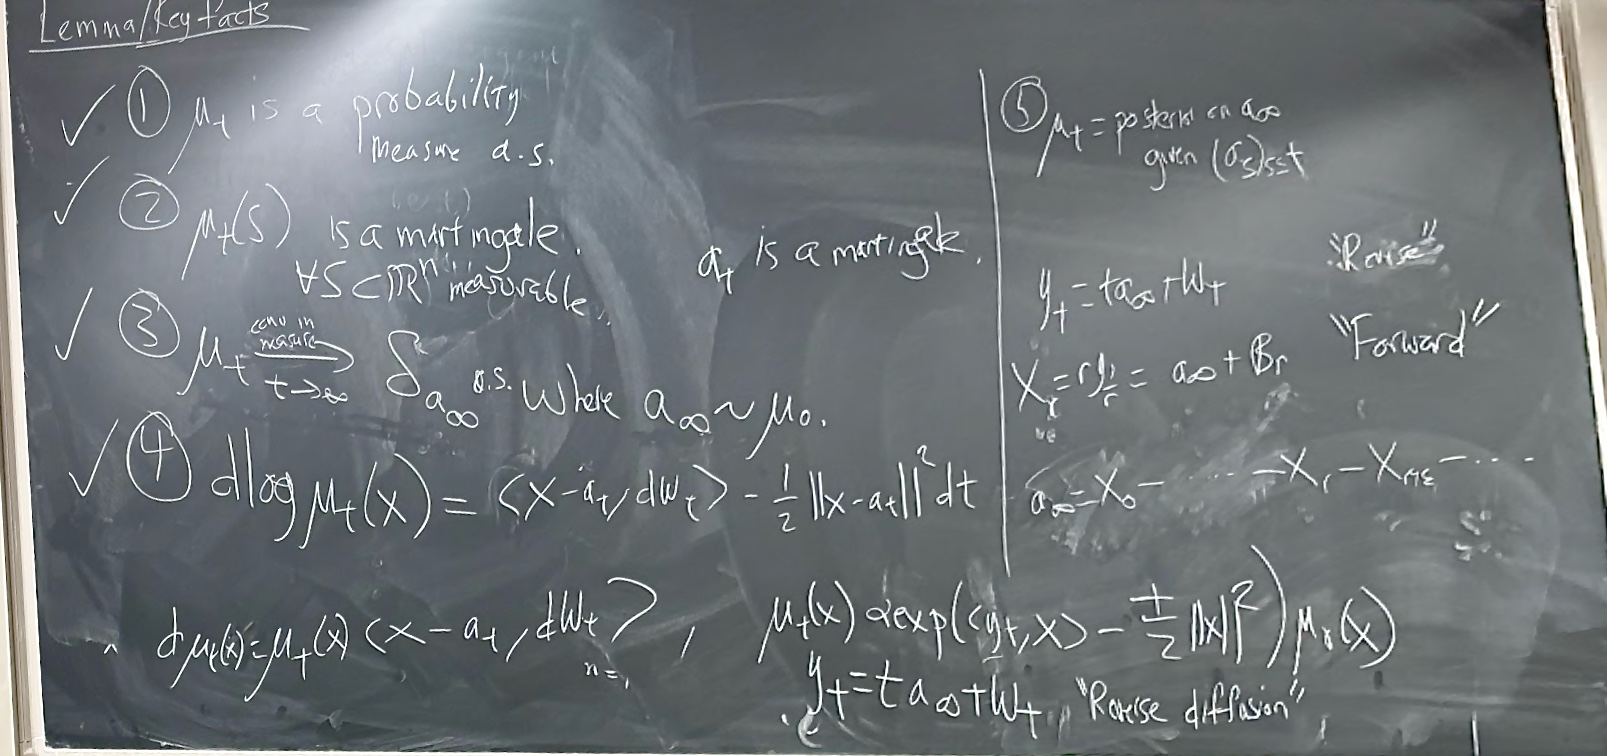 Lemma/Key facts
✓ ① μ_t is a probability
measure a.s.
✓ ② μ_t(S) is a martingale.
∀S⊂ℝⁿ "measurable".
a_t is a martingale.
✓ ③ μ_t →(conv in measure, t→∞) δ_{a_∞} a.s. where a_∞ ~ μ_0.
✓ ④ dlog μ_t(x) = <x-a_t, dW_t> - 1/2 ||x-a_t||² dt
dμ_t(x) = μ_t(x) <x-a_t, dW_t>,
n=1
μ_t(x) ∝ exp(<y_t, x> - t/2 ||x||²) μ_0(x)
y_t = t a_∞ + W_t, "Reverse diffusion"
⑤ μ_t = posterior on a_∞
given (σ_s)_{s≤t}
"Reverse"
y_t = t a_∞ + W_t
"Forward"
X_r = r y_{1/r} = a_∞ + B_r
a_∞ = X_0 - ..... - X_r - X_{r+ε} - ....